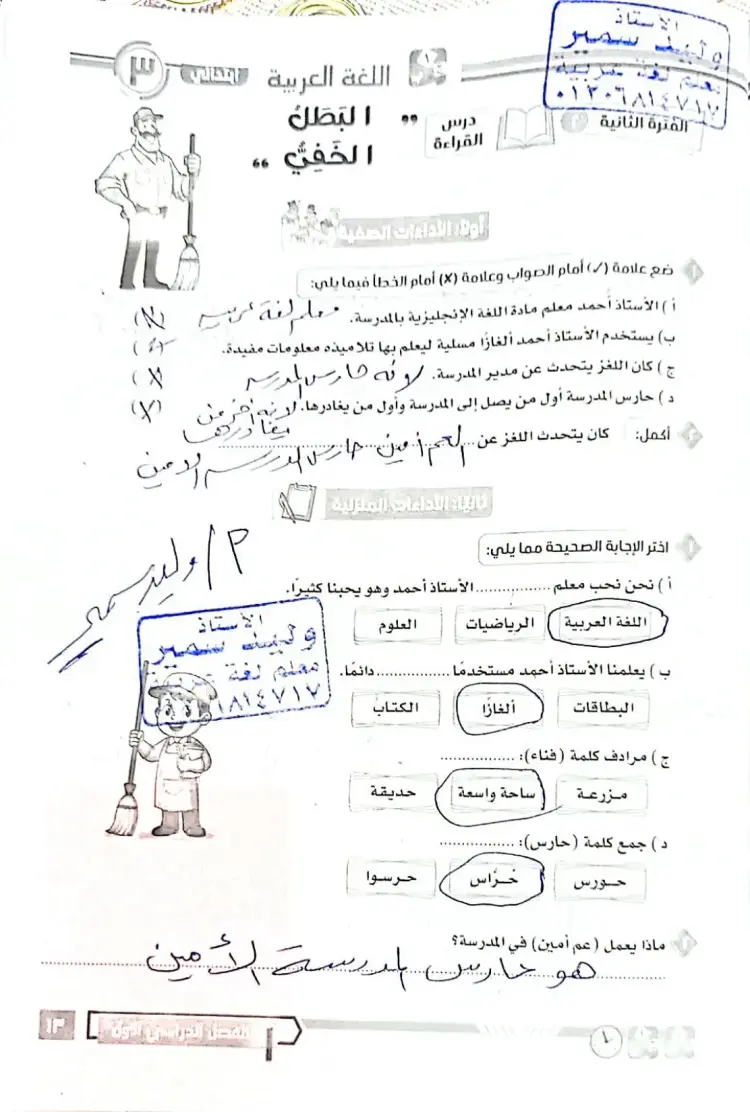 الأستاذ
وليد سمير
معلم لغة عربية
٠١٢٠٦٨١٤٧١٧
اللغة العربية
٣
الفترة الثانية
درس القراءة
" البَطَلُ
الخَفِيُّ "
أولًا: الأداءات الصفية
١ ضع علامة (✓) أمام الصواب وعلامة (X) أمام الخطأ فيما يلي:
أ ) الأستاذ أحمد معلم مادة اللغة الإنجليزية بالمدرسة. معلم لغة عربية (X)
ب) يستخدم الأستاذ أحمد ألغازًا مسلية ليعلم بها تلاميذه معلومات مفيدة. (✓)
ج ) كان اللغز يتحدث عن مدير المدرسة. لانه حارس المدرسه (X)
د ) حارس المدرسة أول من يصل إلى المدرسة وأول من يغادرها. لانه أخر من (X)
يغادرها
٢ أكمل: كان يتحدث اللغز عن العم أمين حارس المدرسه الامين
ثانيًا: الأداءات المنزلية
١ اختر الإجابة الصحيحة مما يلي:
م / وليد سمير
أ ) نحن نحب معلم ............... الأستاذ أحمد وهو يحبنا كثيرًا.
اللغة العربية الرياضيات العلوم
الأستاذ
وليد سمير
معلم لغة عربية
٨١٤٧١٧
ب ) يعلمنا الأستاذ أحمد مستخدمًا ............... دائمًا.
البطاقات ألغازًا الكتاب
ج ) مرادف كلمة (فناء): ...............
مزرعة ساحة واسعة حديقة
د ) جمع كلمة (حارس): ...............
حورس حُرَّاس حرسوا
٢ ماذا يعمل (عم أمين) في المدرسة؟
هو حارس المدرسة الأمين
الفصل الدراسي الأول
١٣